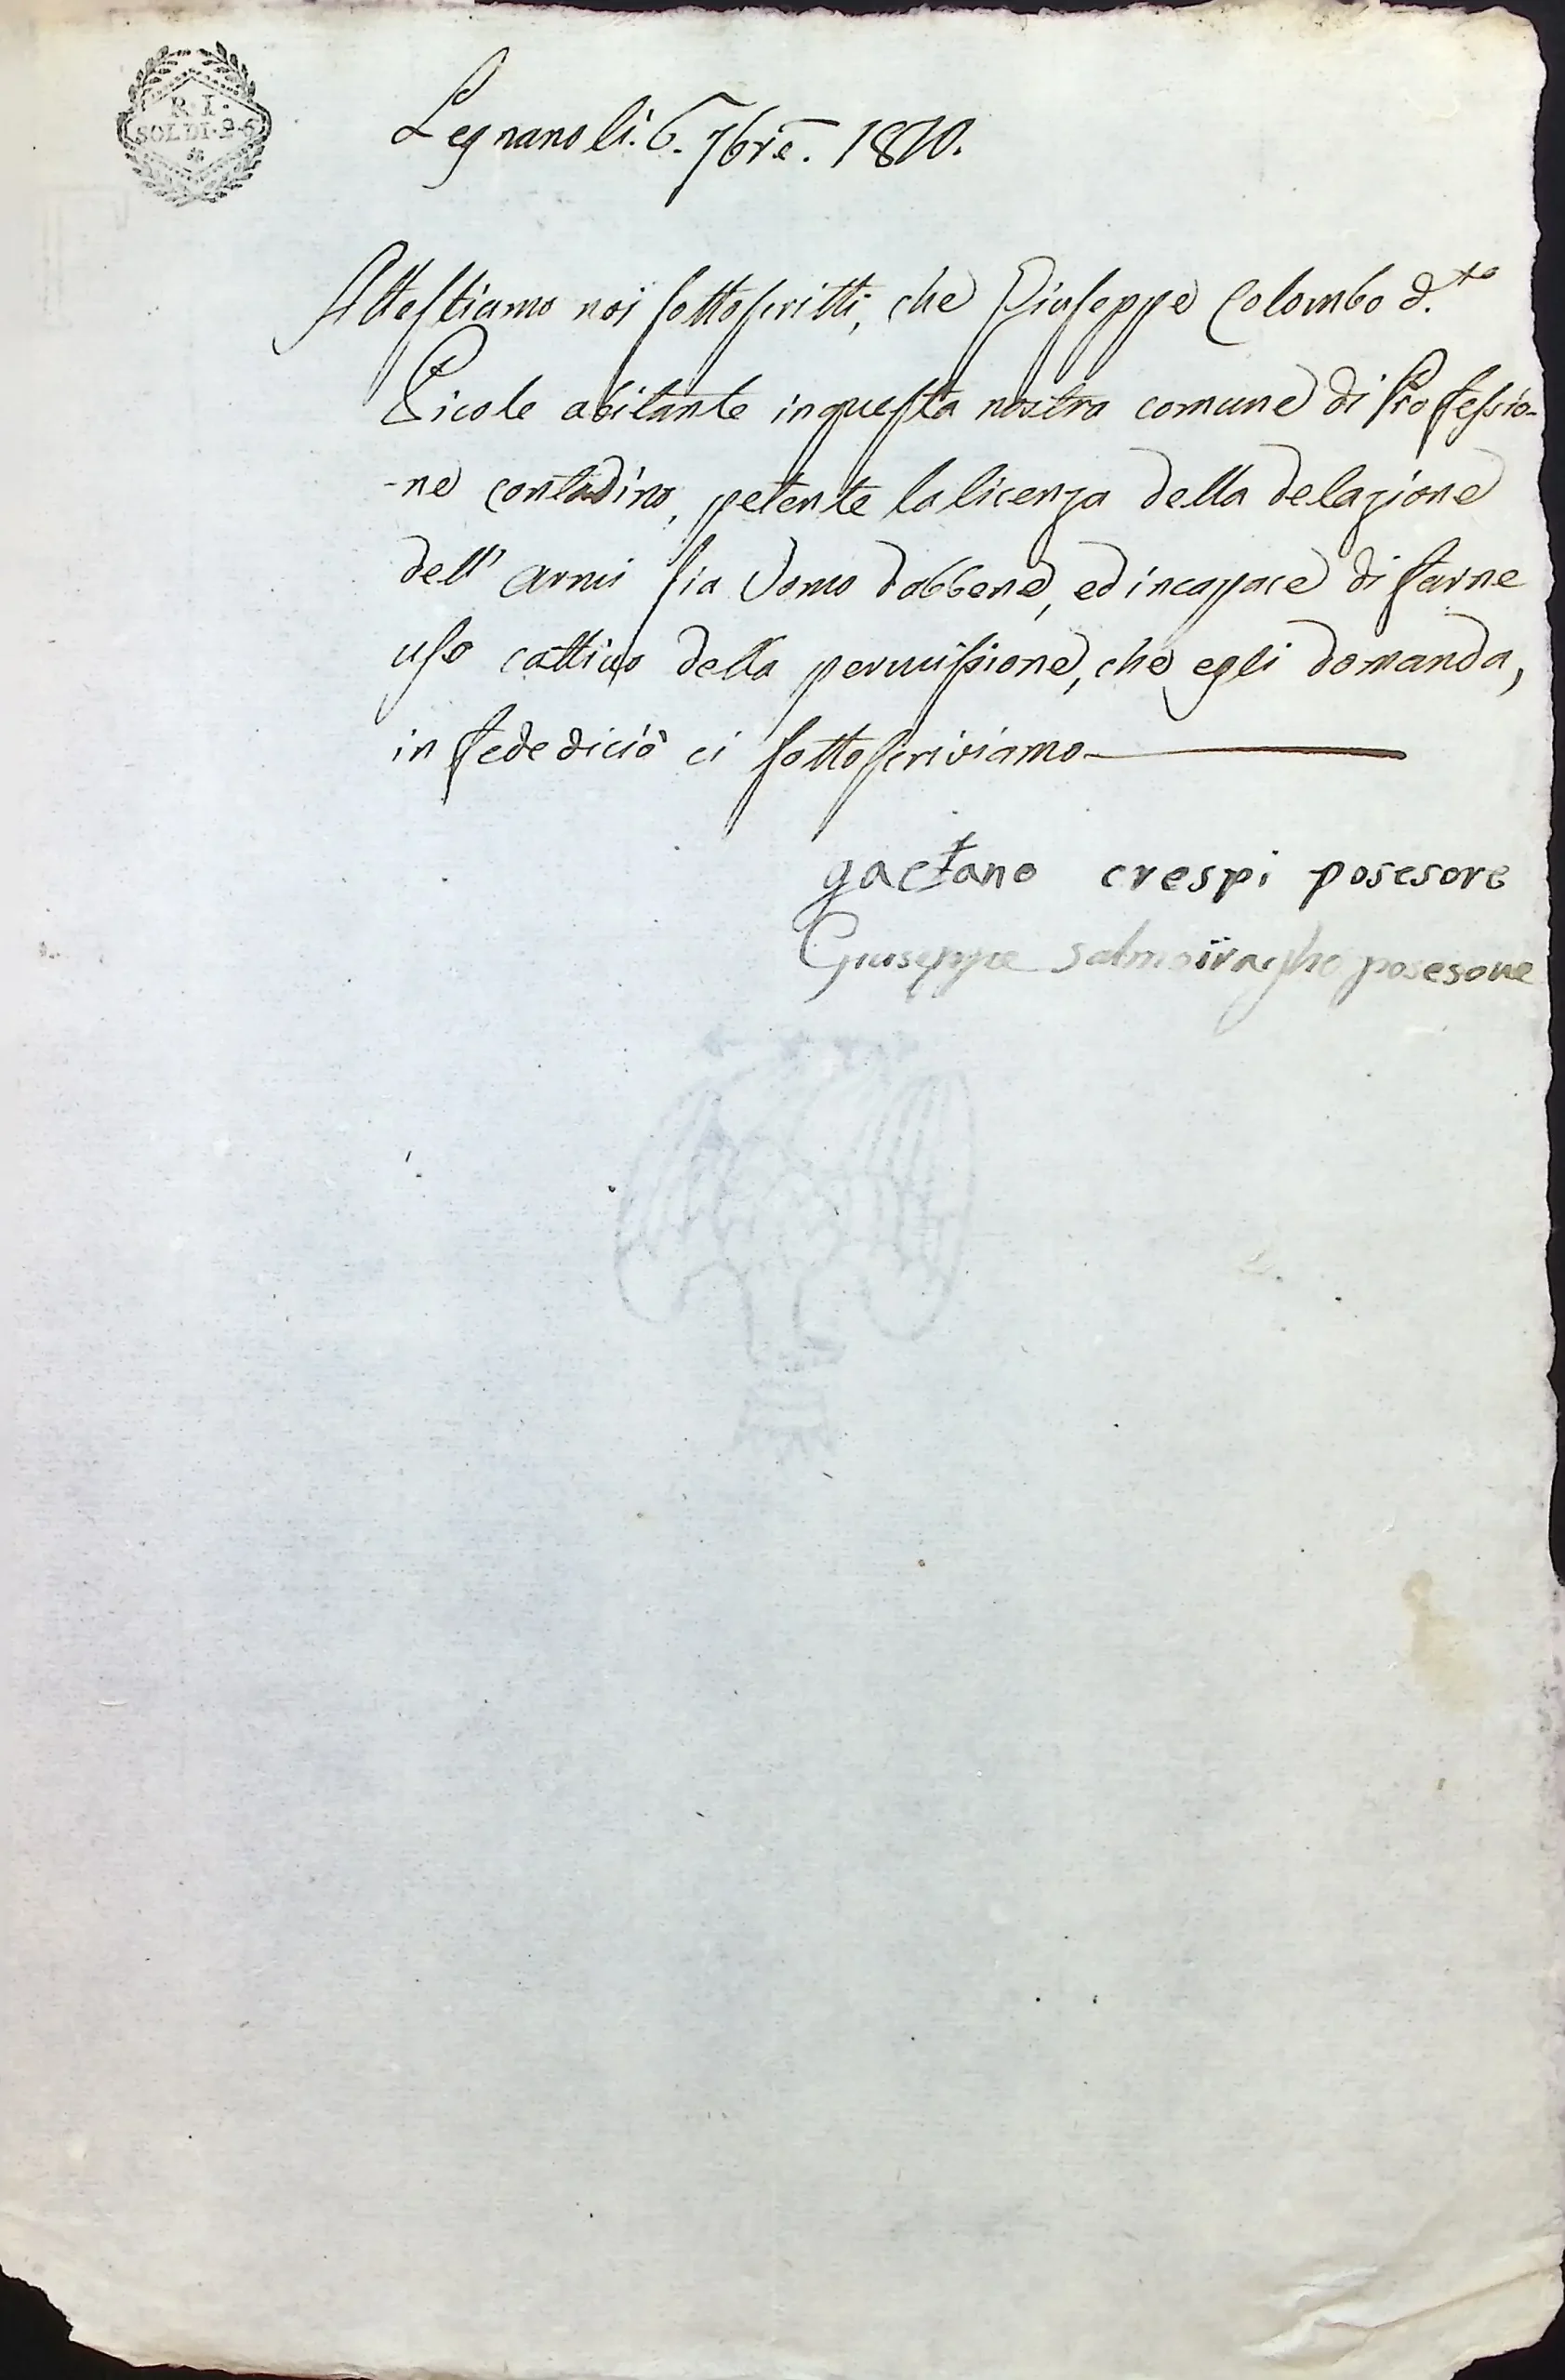 R. I.
SOLDI. 2-6
Legnano li. 6. 7bre. 1810.
Attestiamo noi sottoscritti, che Giuseppe Colombo d.to
abitante in questa nostra comune di Professio-
-ne contadino, petente la licenza della delazione
dell' armi sia Uomo dabbene, ed incapace di farne
uso cattivo della permissione, che egli domanda,
in fede di ciò ci sottoscriviamo
gaetano crespi posesore
Giuseppe Salmoiragho posesore